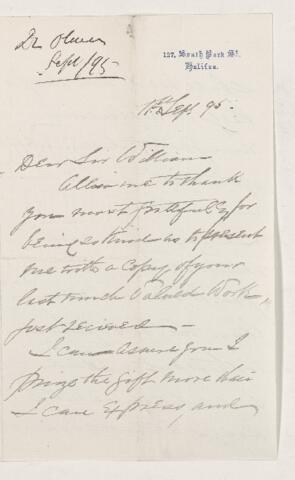 Dr Oliver
Sept/95
127, South Park St.
Halifax.
1st Sep. 95.
Dear Sir William
Allow me to thank
you most gratefully for
being so kind as to present
me with a copy of your
last much valued Work,
just received -
I can assure you I
prize the gift more than
I can express, and